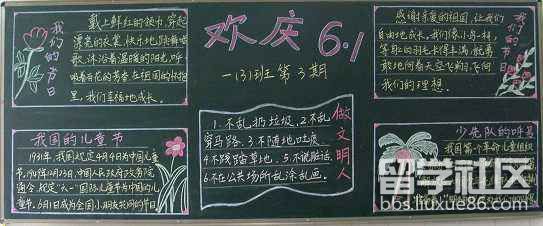 我们的节日
戴上鲜红的领巾,穿起
漂亮的衣裳,快乐地跳舞唱
歌,沐浴着温暖的阳光,呼
吸着百花的芳香,在祖国的怀抱
里,我们幸福地成长。
欢庆6.1
一(3)班第3期
感谢亲爱的祖国,让我们
自由地成长。我们像小鸟一样,
等身上的羽毛长得丰满,就勇
敢地向着天空飞翔,飞向
我们的理想。
我们的节日
我国的儿童节
1931年,我国规定4月4日为中国儿童
节。1949年12月23日,中国人民政府政务院
通令,规定"六一"国际儿童节为中国的儿
童节。6月1日成为全国小朋友共同的节日
做文明人
1.不乱扔垃圾.2.不乱
穿马路.3.不随地吐痰
4.不践踏草地.5.不说脏话.
6.不在公共场所乱涂乱画.
少先队的呼号
我国第一个革命儿童组织
留学社区
bbs.liuxue86.com